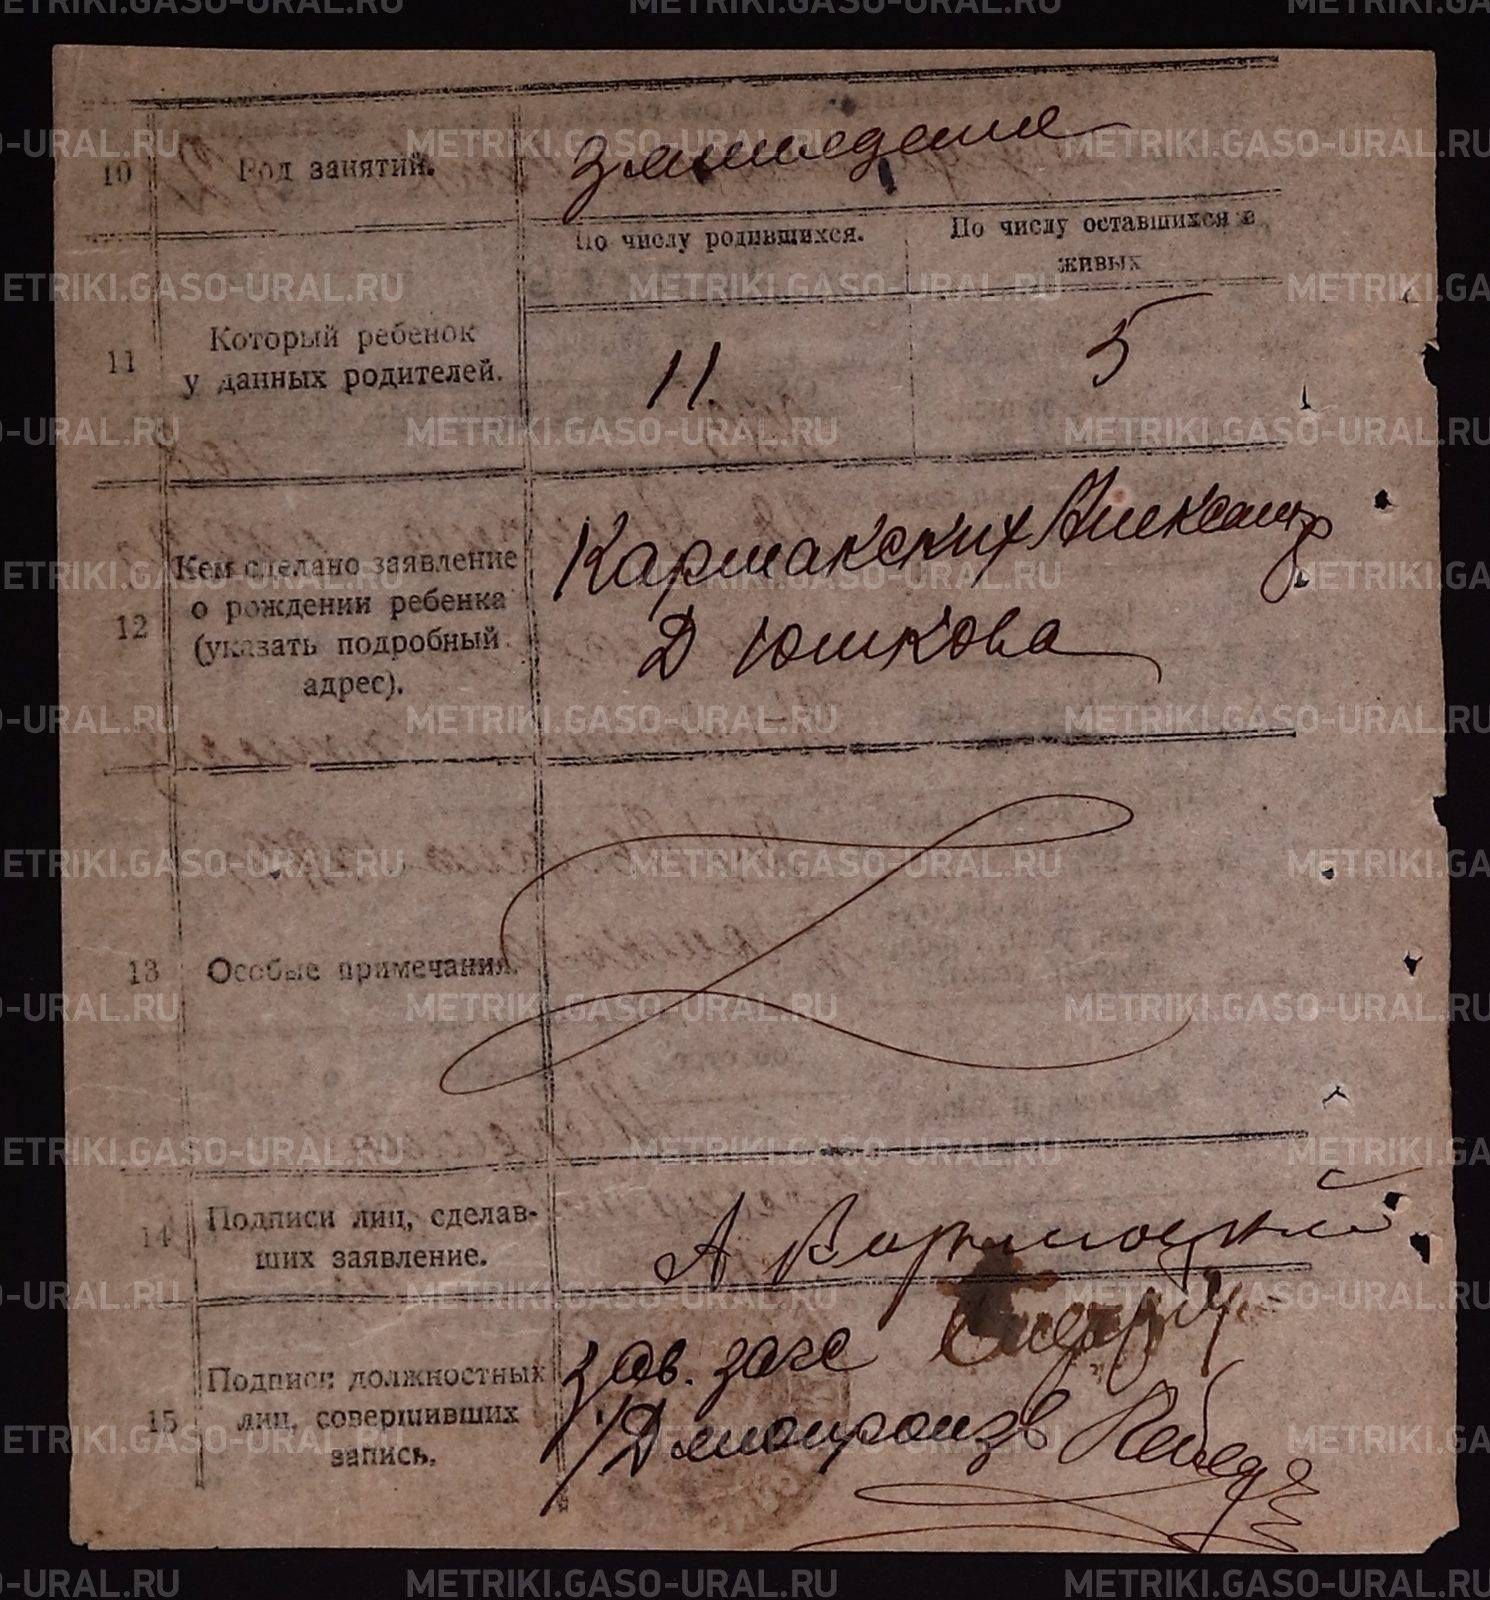 10 Род занятий. земледелие
11 Который ребенок
у данных родителей.
По числу родившихся.
По числу оставшихся в
живых
11.
5
12 Кем сделано заявление
о рождении ребенка
(указать подробный
адрес).
Кармакских Александр
Д Юшкова
13 Особые примечания.
14 Подписи лиц, сделав-
ших заявление.
А
15 Подписи должностных
лиц, совершивших
запись.
Зав. загс
Делопроизв
METRIKI.GASO-URAL.RU